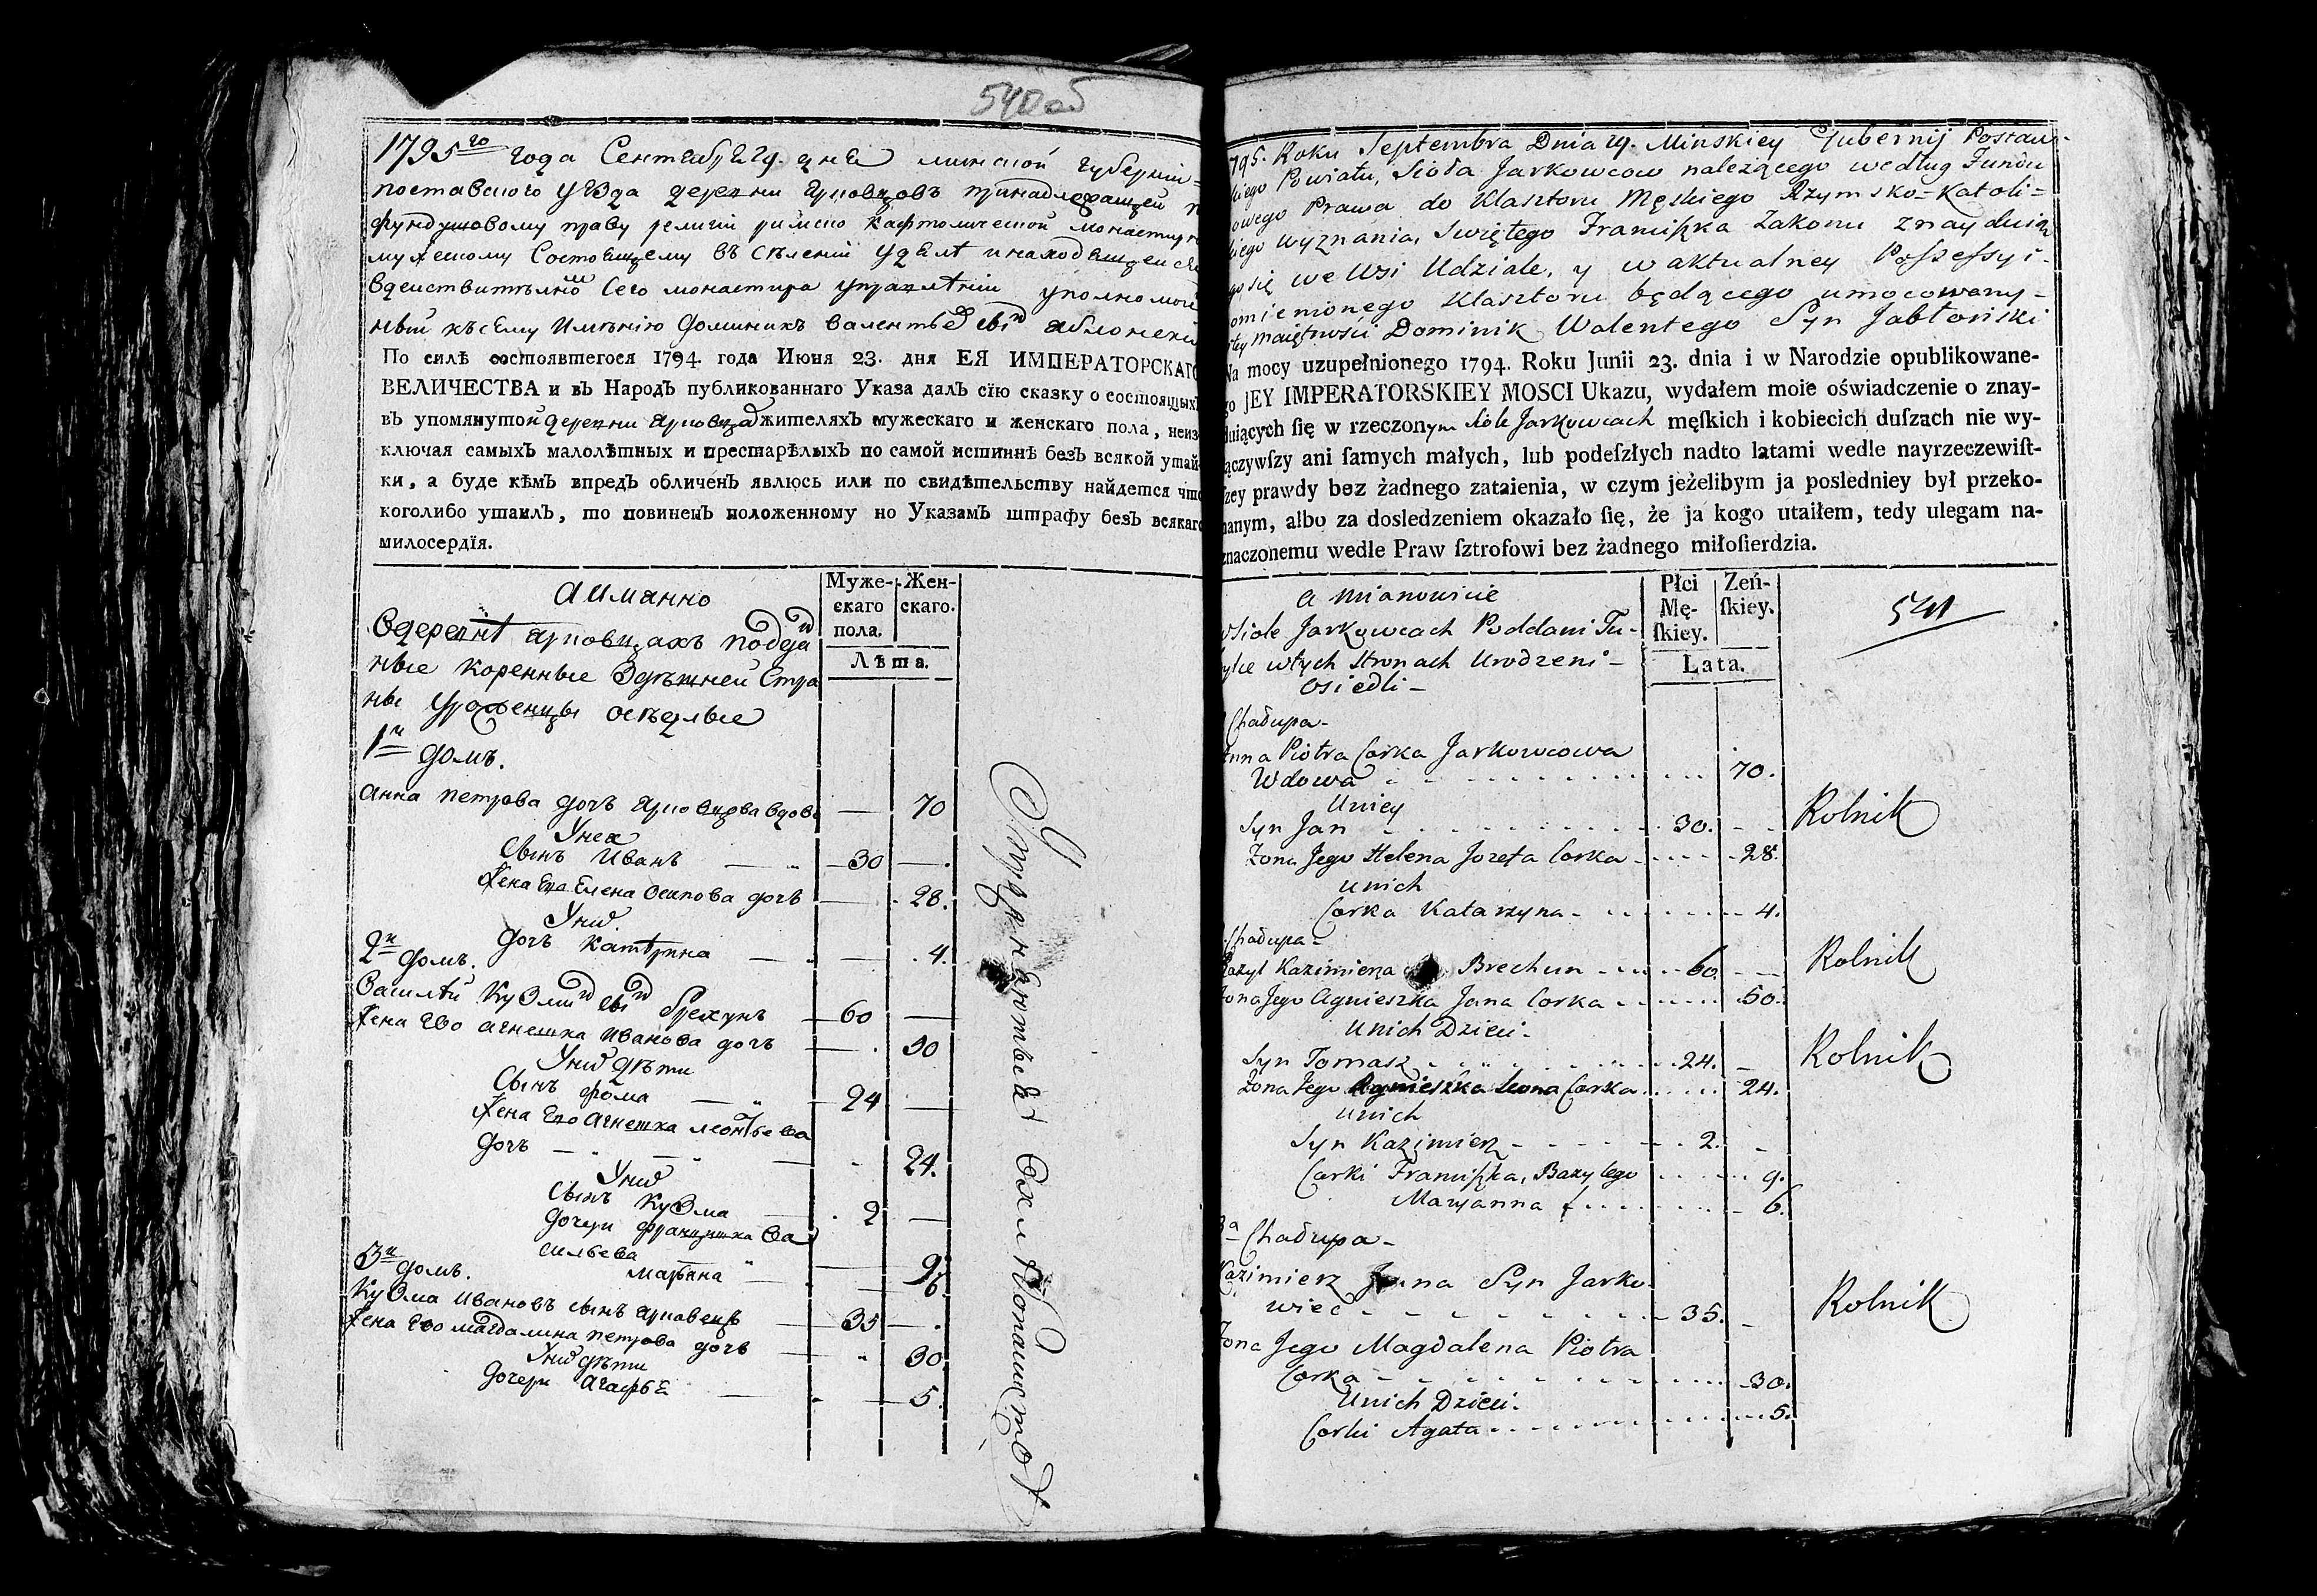 540об
1795го года Сентября 29. дня минской губернии
поставского уезда деревни Ярковцовъ принадлежащей п
фундушовому праву религии римско кафтолической монастир
мужескому Состоящему въ сѣлении Удѣлѣ и находящеися
вдеиствитѣлном сего монастира управлѣнии уполномоче
ный къ сему Имѣнию Доминикъ Валентьевъ сынъ Яблонски
По силѣ состоявшегося 1794. года Июня 23. дня ЕЯ ИМПЕРАТОРСКАГО
ВЕЛИЧЕСТВА и въ Народъ публикованнаго Указа далъ сїю сказку о состоящихъ
въ упомянутой деревни Ярковцахъ жителяхъ мужескаго и женскаго пола, неиз-
ключая самыхъ малолѣтныхъ и престарѣлыхъ по самой истиннѣ безъ всякой утай-
ки, а буде кѣмъ впредь обличенъ явлюсь или по свидѣтельству найдется что
коголибо утаилъ, то повиненъ положенному по Указамъ штрафу безъ всякаго
милосердїя.
Муже-
скаго
пола.
Жен-
скаго.
Лѣта.
а имянно
Вдеревнѣ Ярковцахъ поддан
ные коренные Здѣшней Стра
ны уроженцы осѣдлые
1й домъ.
Анна петрова дочъ Ярковцова вдова — 70
Унея
Сынъ Иванъ — 30 —
Жена Его Елена Осипова дочъ — 28.
Уних
дочъ Катѣрина — 4.
2й домъ.
Василѣй Кузминъ сынъ Брехунъ — 60 —
Жена Его Агнешка Иванова дочъ — 50
Уних дѣти
Сынъ Фома — 24 —
Жена Его Агнешка Леонтьева
дочъ — 24.
Уних
Сынъ Кузма — 2 —
Дочери Францишка Ва
сильева — 9
Марьяна — 6.
3й домъ.
Кузма Ивановъ сынъ Ярковецъ — 35 —
Жена Его Магдалина петрова дочъ — 30
Уних дѣти
Дочери Агафья — 5.
1795. Roku Septembra Dnia 29. Minskiey Gubernij Postaw-
skiego Powiatu, Sioła Jarkowcow należącego według Fundu
szowego Prawa do Klasztoru Męskiego Rzymsko-Katoli-
kiego wyznania, Swiętego Franciszka Zakonu znayduią
go się we Wsi Udziale, y w aktualney Possessyi-
omienionego Klasztoru będącego umocowany-
tey maiętności Dominik Walentego Syn Jabłoński
Na mocy uzupełnionego 1794. Roku Junii 23. dnia i w Narodzie opublikowane-
go JEY IMPERATORSKIEY MOSCI Ukazu, wydałem moie oświadczenie o znay-
duiących ſię w rzeczonym siole Jarkowcach męſkich i kobiecich duſzach nie wy-
łączywſzy ani ſamych małych, lub podeſzłych nadto latami wedle nayrzeczewiſt-
ſzey prawdy bez żadnego zataienia, w czym jeżelibym ja posledniey był przeko-
nanym, albo za dosledzeniem okazało ſię, że ja kogo utaiłem, tedy ulegam na-
znaczonemu wedle Praw ſztrofowi bez żadnego miłoſierdzia.
Płci
Mę-
ſkiey.
Zeń-
ſkiey.
Lata.
541
a mianowicie
w Siole Jarkowcach Poddani Tu-
tylce w tych Stronach Urodzeni-
Osiedli-
Chałupa-
Anna Piotra Corka Jarkowcowa
Wdowa 70.
Uniey
Syn Jan 30. Rolnik
Zona Jego Helena Jozefa Corka 28.
Unich
Corka Katarzyna 4.
Chałupa-
Bazyl Kazimierza Brechun 60. Rolnik
Zona Jego Agnieszka Jana Corka 50.
Unich Dzieci-
Syn Tomasz 24. Rolnik
Zona Jego Agnieszka Leona Corka 24.
Unich
Syn Kazimierz 2.
Corki Franciszka, Bazylego 9.
Maryanna 6.
3a Chałupa-
Kazimierz Jana Syn Jarko-
wiec 35. Rolnik
Zona Jego Magdalena Piotra
Corka 30.
Unich Dzieci.
Corki Agata 5.